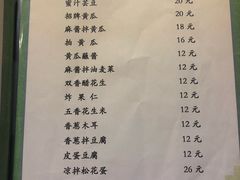 蜜汁芸豆 20元
招牌黄瓜 20元
麻酱拌黄瓜 18元
拍黄瓜 16元
黄瓜蘸酱 12元
麻酱拌油麦菜 12元
双香醋花生 12元
炸果仁 12元
五香花生米 12元
香葱木耳 12元
香葱拌豆腐 12元
皮蛋豆腐 12元
凉拌松花蛋 26元